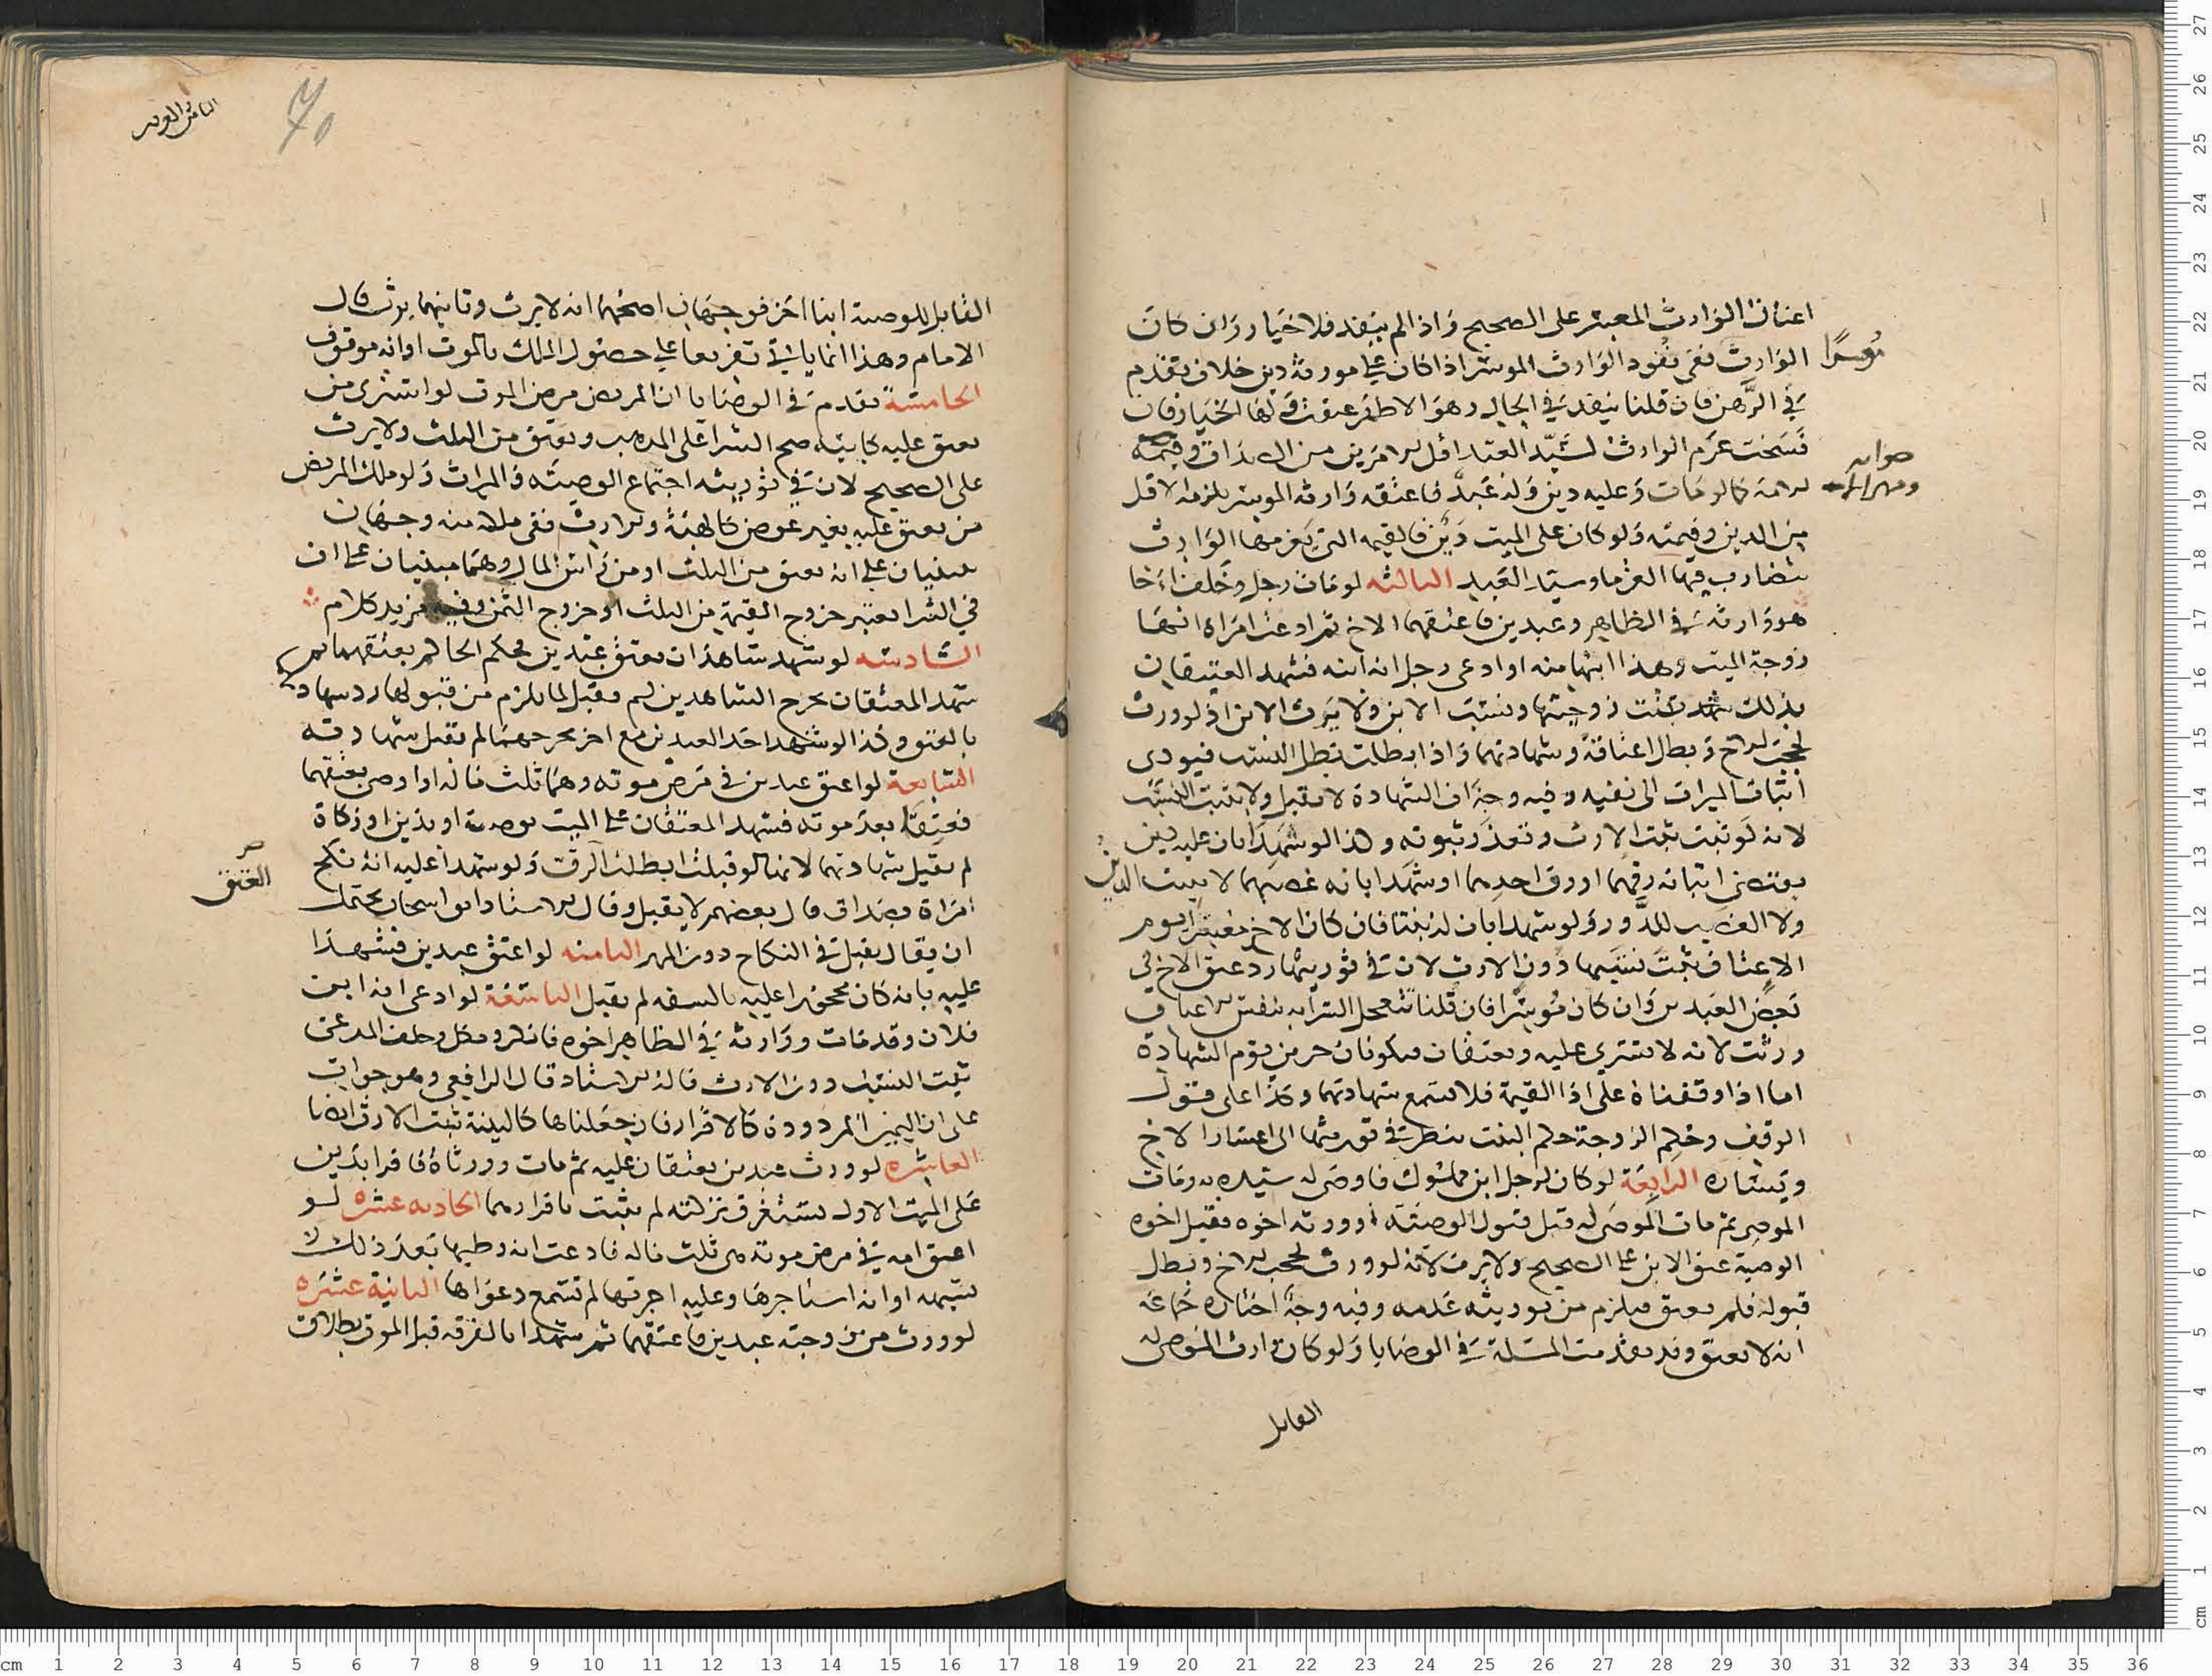 اعتاق الوارث المعسر على الصحيح واذا لم ينفذ فلا خيار وان كان
موسرا
الوارث ففى نفوذ الوارث الموسر اذا كان على مورثه دين خلاف تقدم
في الرهن فان قلنا ينفذ في الحال وهو الاظهر عتقت ولها الخيار فان
فسخت غرم الوارث لسيد العبد اقل الامرين من الصداق وقيمة
صوابه
الامة كما لو مات وعليه دين وله عبد فاعتقه وارثه الموسر يلزمه الاقل
من الدين وقيمته ولو كان على الميت دين فالقيمة التي يغرمها الوارث
يتضارب فيها الغرما وسيد العبد الثالثه لو مات رجل وخلف اخا
هو وارثه في الظاهر وعبدين فاعتقهما الاخ ثم ادعت امراة انها
زوجة الميت وهذا ابنها منه او ادعى رجل انه ابنه فشهد العتيقان
بذلك ثبتت زوجيتها ونسب الابن ولا يرث الابن اذ لو ورث
لحجب الاخ وبطل اعتاقه وشهادتهما واذا بطلت بطل النسب فيودى
اثبات الميراث الى نفيه وفيه وجه ان الشهادة لا تقبل ولا يثبت النسب
لانه لو ثبت ثبت الارث وتعذر ثبوته وكذا لو شهدا بان عليه دين
يقتضى اثباته رقهما او رق احدهما او شهدا بانه غصبهما لا يثبت الدين
ولا الغصب للدور ولو شهدا بان له بنتا فان كان الاخ معسرا يوم
الاعتاق ثبت نسبها دون الارث لان في توريثها رد عتق الاخ في
بعض العبدين وان كان موسرا فان قلنا تتعجل السراية بنفس الاعتاق
ورثت لانه لا تسرى عليه ويعتقان فيكونان حرين يوم الشهادة
اما اذا وقفناه على ادا القيمة فلا تسمع شهادتهما وكذا على قول
الوقف وحكم الزوجة حكم البنت ينظر في توريثها الى اعسار الاخ
ويساره الرابعة لو كان لرجل ابن مملوك فاوصى له سيده به ومات
الموصى ثم مات الموصى له قبل قبول الوصية وورثه اخوه فقبل اخوه
الوصية عتق الابن على الصحيح ولا يرث لانه لو ورث لحجب الاخ وبطل
قبوله فلم يعتق فيلزم من توريثه عدمه وفيه وجه اختاره جماعة
انه لا يعتق وقد تقدمت المسلة في الوصايا ولو كان وارث الموصى له
القابل
الثامن والعشر
القابل للوصية ابنا اخر فوجهان اصحهما انه لا يرث وثانيهما يرث قال
الامام وهذا انما ياتى تفريعا على حصول الملك بالموت او انه موقوف
الخامسة تقدم في الوصايا ان المريض مرض الموت لو اشترى من
يعتق عليه كابيه صح الشرا على المذهب ويعتق من الثلث ولا يرث
على الصحيح لان في توريثه اجتماع الوصية والميراث ولو ملك المريض
من يعتق عليه بغير عوض كالهبة والارث ففى ملكه منه وجهان
مبنيان على انه يعتق من الثلث او من راس المال وهما مبنيان على ان
في الشرا يعتبر خروج القيمة من الثلث او خروج الثمن وفيه مزيد كلام
السادسه لو شهد شاهدان بعتق عبدين فحكم الحاكم بعتقهما ثم
شهد المعتقان بجرح الشاهدين لم يقبل لما يلزم من قبولها رد شهادة
بالعتق وكذا لو شهد احد العبدين مع اخر بجرحهما لم تقبل شهادته
السابعة لو اعتق عبدين في مرض موته وهما ثلث ماله او اوصى بعتقهما
فعتقا بعد موته فشهد المعتقان على الميت بوصية او بدين او زكاة
لم يقبل شهادتهما لانها لو قبلت ابطلت الرق ولو شهدا عليه انه نكح
العتق
امراة بصداق قال بعضهم لا يقبل وقال الاستاذ ابو اسحاق يحتمل
ان يقال يقبل في النكاح دون المهر الثامنه لو اعتق عبدين فشهدا
عليه بانه كان محجورا عليه بالسفه لم يقبل التاسعة لو ادعى انه ابن
فلان وقد مات ووارثه في الظاهر اخوه فانكر ونكل وحلف المدعى
ثبت النسب دون الارث قاله الاستاذ قال الرافعى وهو جواب
على ان اليمين المردودة كالاقرار فان جعلناها كالبينة ثبت الارث ايضا
العاشره لو ورث عبدين يعتقان عليه ثم مات وورثاه فاقرا بدين
على الميت الاول يستغرق تركته لم يثبت باقرارهما الحاديه عشره لو
اعتق امه في مرض موته هى ثلث ماله فادعت انه وطيها بعد ذلك
بشبهه او انه استاجرها وعليه اجرتها لم تسمع دعواها الثانية عشره
لو ورث من زوجته عبدين فاعتقهما ثم شهدا بالفرقه قبل الموت بطلاق